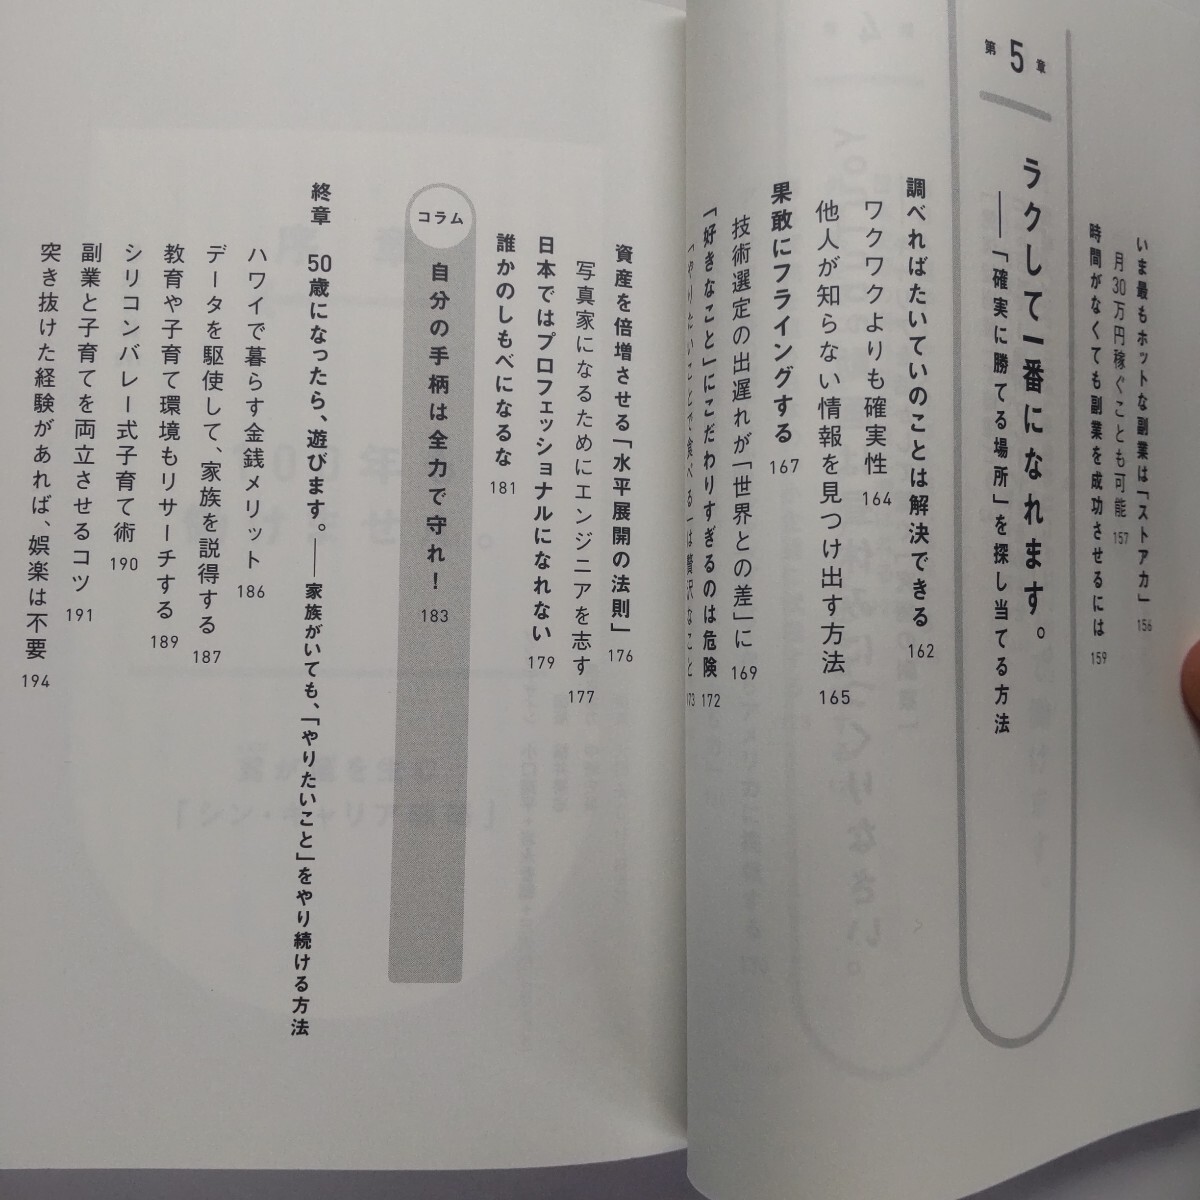 いま最もホットな副業は「ストアカ」 156
月30万円稼ぐことも可能 157
時間がなくても副業を成功させるには 159
第5章
ラクして一番になれます。
――「確実に勝てる場所」を探し当てる方法
調べればたいていのことは解決できる 162
ワクワクよりも確実性 164
他人が知らない情報を見つけ出す方法 165
果敢にフライングする 167
技術選定の出遅れが「世界との差」に 169
「好きなこと」にこだわりすぎるのは危険 172
「やりたいことで食べる」は贅沢なこと 173
資産を倍増させる「水平展開の法則」 176
写真家になるためにエンジニアを志す 177
日本ではプロフェッショナルになれない 179
誰かのしもべになるな 181
コラム 自分の手柄は全力で守れ! 183
終章 50歳になったら、遊びます。――家族がいても、「やりたいこと」をやり続ける方法
ハワイで暮らす金銭メリット 186
データを駆使して、家族を説得する 187
教育や子育て環境もリサーチする 189
シリコンバレー式子育て術 190
副業と子育てを両立させるコツ 191
突き抜けた経験があれば、娯楽は不要 194